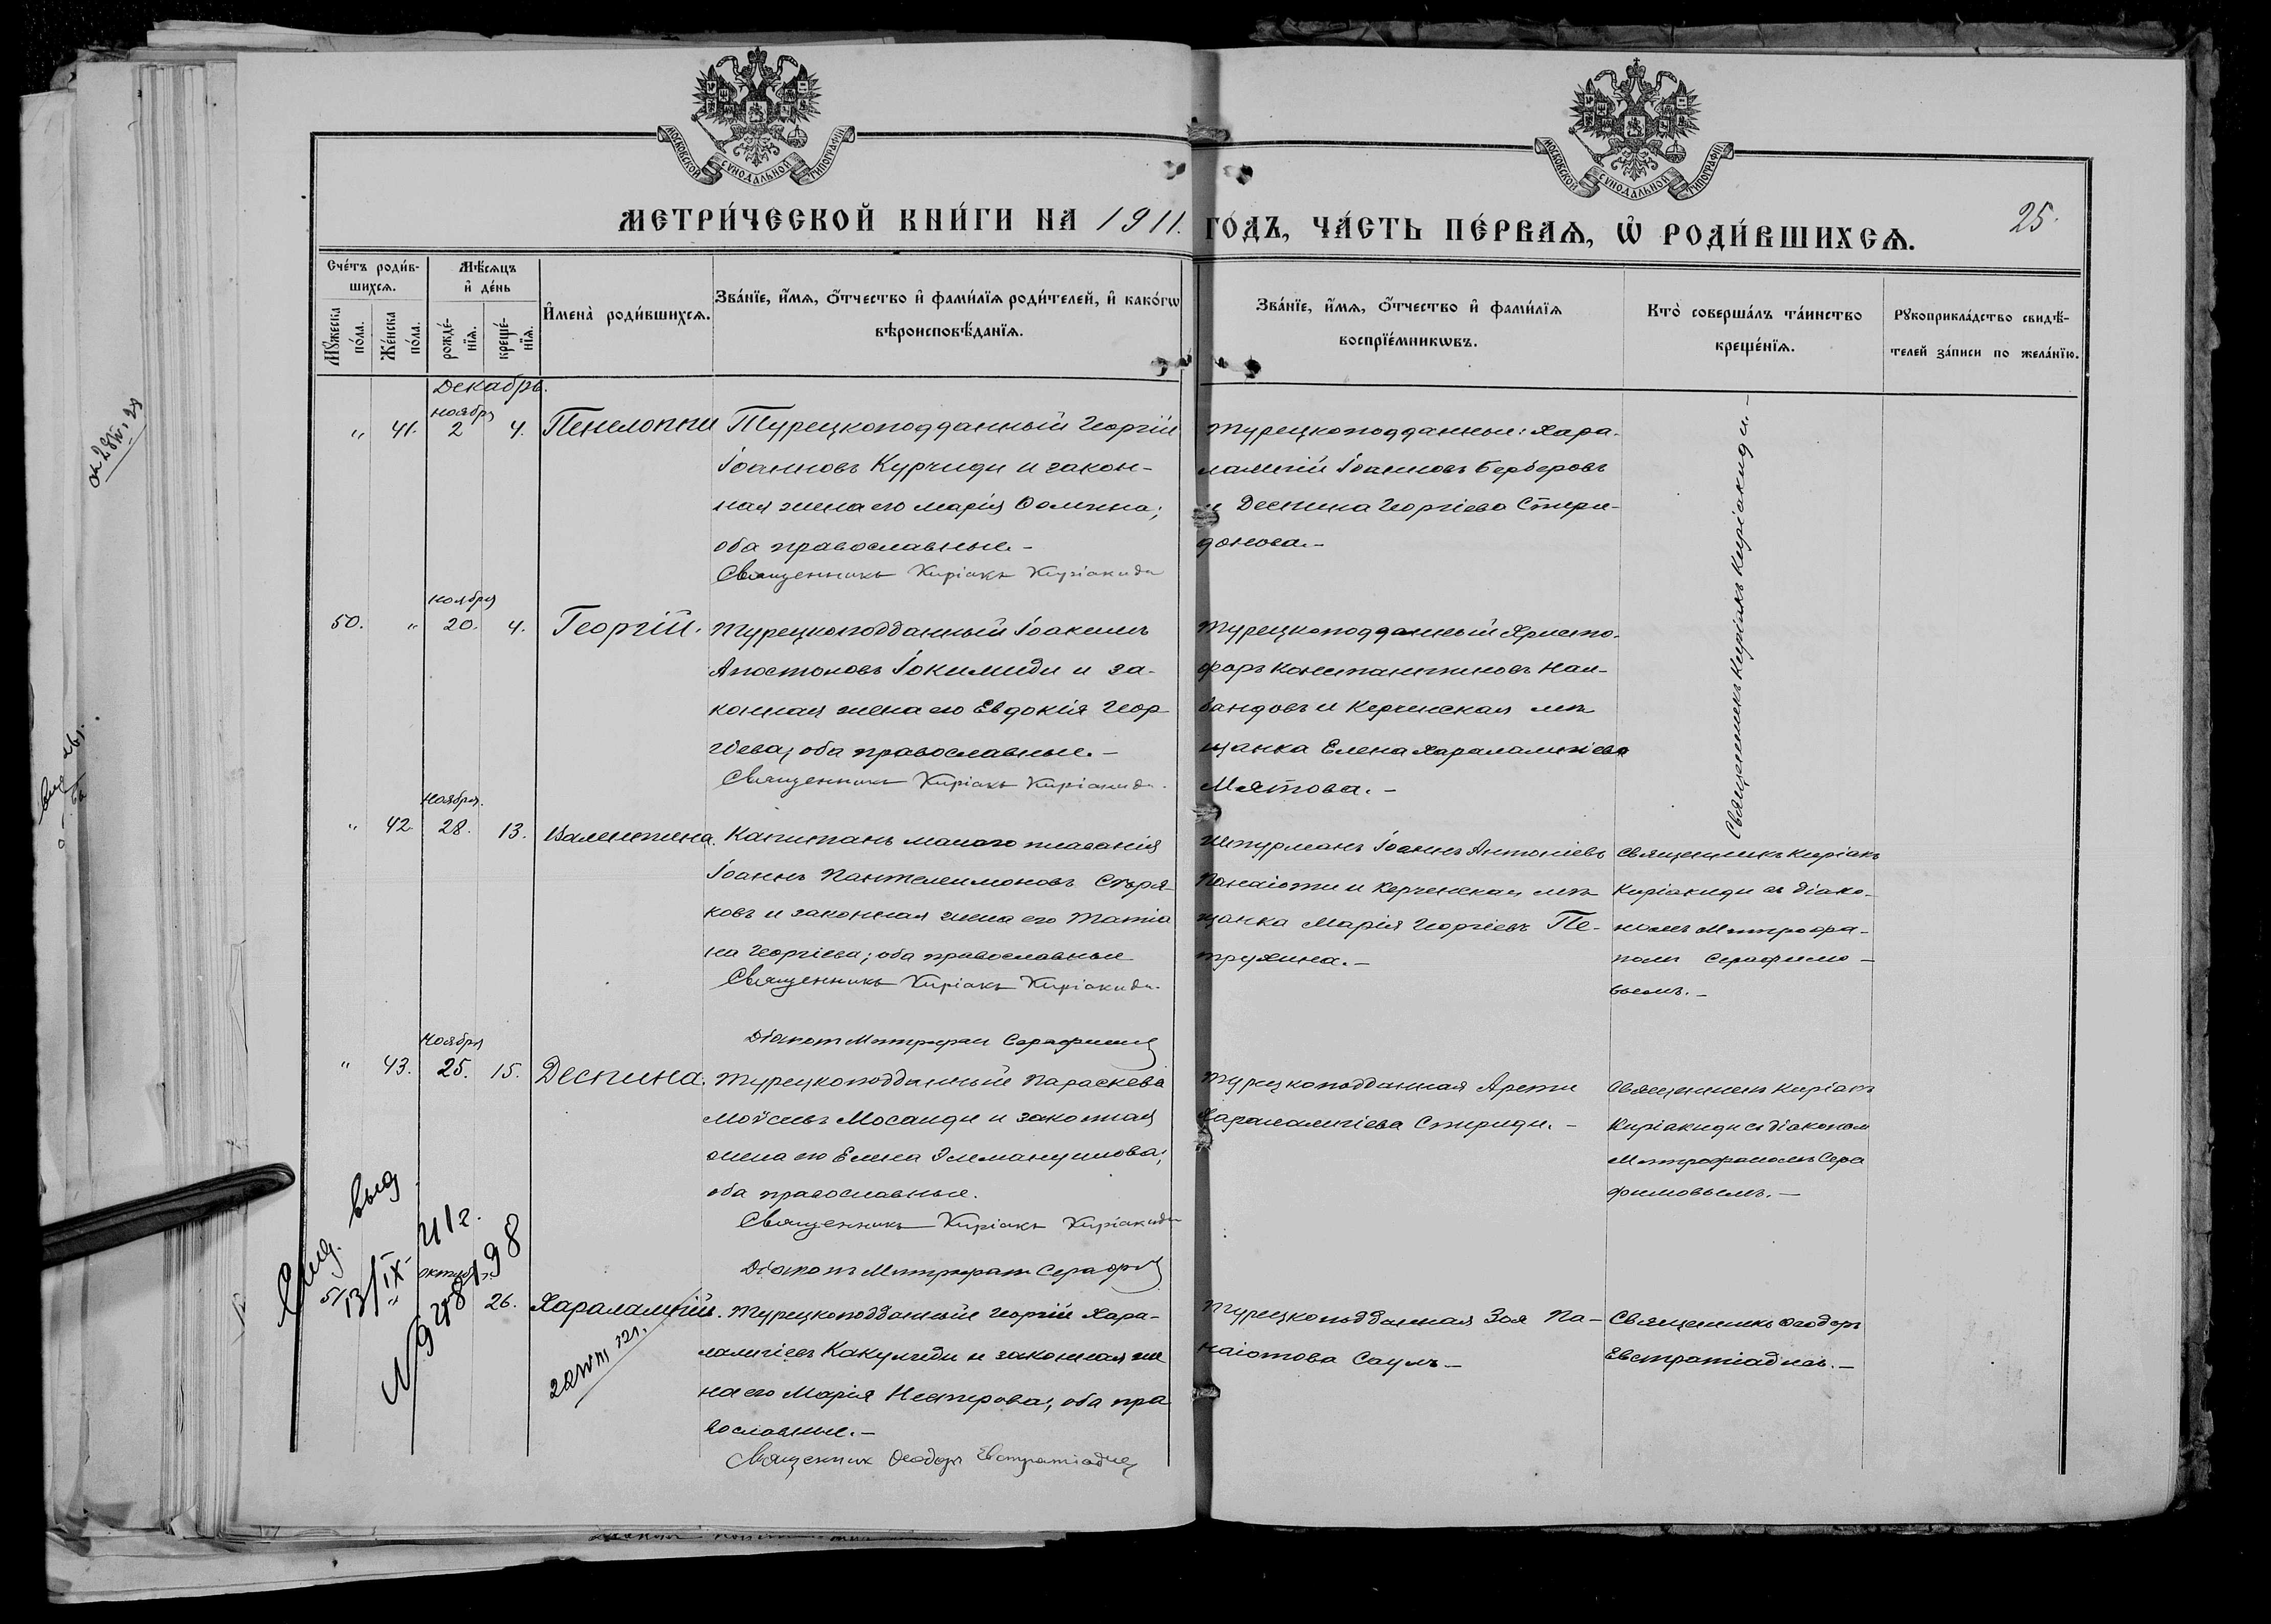 МОСКОВСКОЙ СѴНОДАЛЬНОЙ ТИПОГРАФІИ
МОСКОВСКОЙ СѴНОДАЛЬНОЙ ТИПОГРАФІИ
МЕТРИ́ЧЕСКОЙ КНИ́ГИ НА 1911. ГО́ДЪ, ЧА́СТЬ ПЕ́РВАѦ, Ѡ҆ РОДИ́ВШИХСѦ.
25.
Сче́тъ роди́в-
шихсѧ.
Мꙋ́жеска
по́ла.
Же́нска
по́ла.
Мѣ́сѧцъ
и҆ де́нь
рожде́-
нїѧ.
креще́-
нїѧ.
И҆мена̀ роди́вшихсѧ.
Зва́нїе, и҆́мѧ, ѻ҆́тчество и҆ фами́лїѧ роди́телей, и҆ како́гѡ
вѣроисповѣ́данїѧ.
Зва́нїе, и҆́мѧ, ѻ҆́тчество и҆ фами́лїѧ
воспрїе́мникѡвъ.
Кто̀ соверша́лъ та́инство
креще́нїѧ.
Рꙋкоприкла́дство свидѣ́-
телей за́писи по жела́нїю.
Декабрь.
ноября
" 41. 2 4. Пенелоппи
Турецкоподданный Георгій
Іоанновъ Курчиди и закон-
ная жена его Марія Ѳомина;
оба православные.-
Священникъ Киріакъ Киріакиди
Турецкоподданные: Хара-
лампій Іоанновъ Берберовъ
и Деспина Георгіева Спири-
донова.-
Священникъ Киріакъ Киріакиди.-
ноября
50. " 20. 4. Георгій.
Турецкоподданный Іоакимъ
Апостоловъ Іокимиди и за-
конная жена его Евдокія Геор
гіева; оба православные.-
Священникъ Киріакъ Киріакиди.
Турецкоподданный Христо-
форъ Константиновъ Нал-
бандовъ и Керченская мѣ
щанка Елена Харалампіева
Мятова.-
Ноября.
" 42. 28. 13. Валентина.
Капитанъ малаго плаванія
Іоаннъ Пантелеимоновъ Старя-
ковъ и законная жена его Татіа
на Георгіева; оба православные
Священникъ Киріакъ Киріакиди.
Діаконъ Митрофан Серафимов
Штурманъ Іоаннъ Антоніевъ
Панаіоти и Керченская мѣ
щанка Марія Георгіевъ Пе-
трухина.-
Священникъ Киріакъ
Киріакиди съ діако-
номъ Митрофа-
номъ Серафимо-
вымъ.-
Ноября
" 43. 25. 15. Деспина.
Турецкоподданный Параскева
Моѵсеевъ Мосаиди и законная
жена его Елена Эммануилова;
оба православные.
Священникъ Киріакъ Киріакиди
Діаконъ Митрофанъ Сераф
Турецкоподданная Арети
Харалампіева Спириди.-
Священникъ Киріакъ
Киріакиди съ діакономъ
Митрофаномъ Сера
фимовымъ.-
октября
51 " 26. Харалампій.
Турецкоподданный Георгій Хара-
лампіевъ Какулиди и законная же
на его Марія Несторова; оба пра
вославные.-
Священник Ѳеодоръ Евстратіадис
Турецкоподданная Зоя Па-
наіотова Саулъ.-
Священникъ Ѳеодоръ
Евстратіадисъ.-
выд
13/IX-